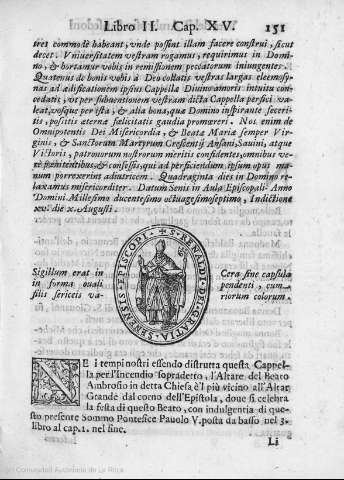 Libro II. Cap. XV. 151
tres commodè habeant, unde possint illam facere construi, sicut
decet. Universitatem vestram rogamus, requirimus in Domi-
no, & hortamur vobis in remissionem peccatorum iniungentes.
Quatenus de bonis vobis à Deo collatis vestras largas eleemosy-
nas ad ædificationem ipsius Cappellæ Divino amoris intuitu con-
cedatis, ut per subventionem vestram dicta Cappella perfici va-
leat, vosque per ista, & alia bona, qua Domino inspirante feceri-
tis, positis æterna fœlicitatis gaudia promereri. Nos enim de
Omnipotentis Dei Misericordia, & Beatæ Mariæ semper Vir-
ginis, & Sanctorum Martyrum Crescentij Ansani, Savini, atque
Victoris, patronorum nostrorum meritis confidentes, omnibus ve-
rè pænitentibus, & confessis, qui ad perficiendum ipsum opus ma-
num porrexerint adiutricem. Quadraginta dies in Domino re-
laxamus misericorditer. Datum Senis in Aula Episcopali. Anno
Domini Millesimo ducentesimo octuagesimoseptimo, Indictione
xv. die x. Augusti.
Sigillum erat in
in forma ovali
filis sericeis va-
✠ S. RAYNALDI DEI GRATIA SENENSIS EPISCOPI
Ceræ sine capsula
pendenti, cum
riorum colorum.
NE i tempi nostri essendo distrutta questa Cappel-
la per l'incendio sopradetto, l'Altare del Beato
Ambrosio in detta Chiesa è 'l più vicino all'Altar
Grande dal corno dell'Epistola, dove si celebra
la festa di questo Beato, con indulgentia di que-
sto presente Sommo Pontefice Pauolo V. posta da basso nel 3.
libro al cap. 1. nel fine.
Li
© Comunidad Autónoma de La Rioja